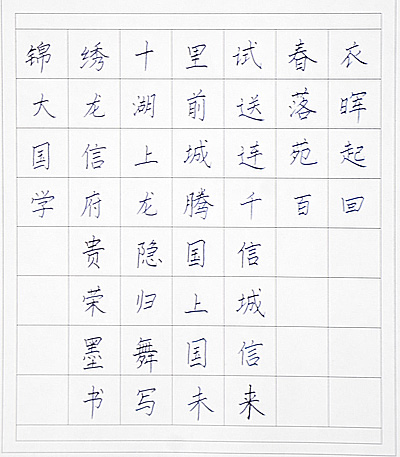 锦绣十里试春衣
大龙湖前送落晖
国信上城连苑起
学府龙腾千百回
贵隐国信
荣归上城
墨舞国信
书写未来